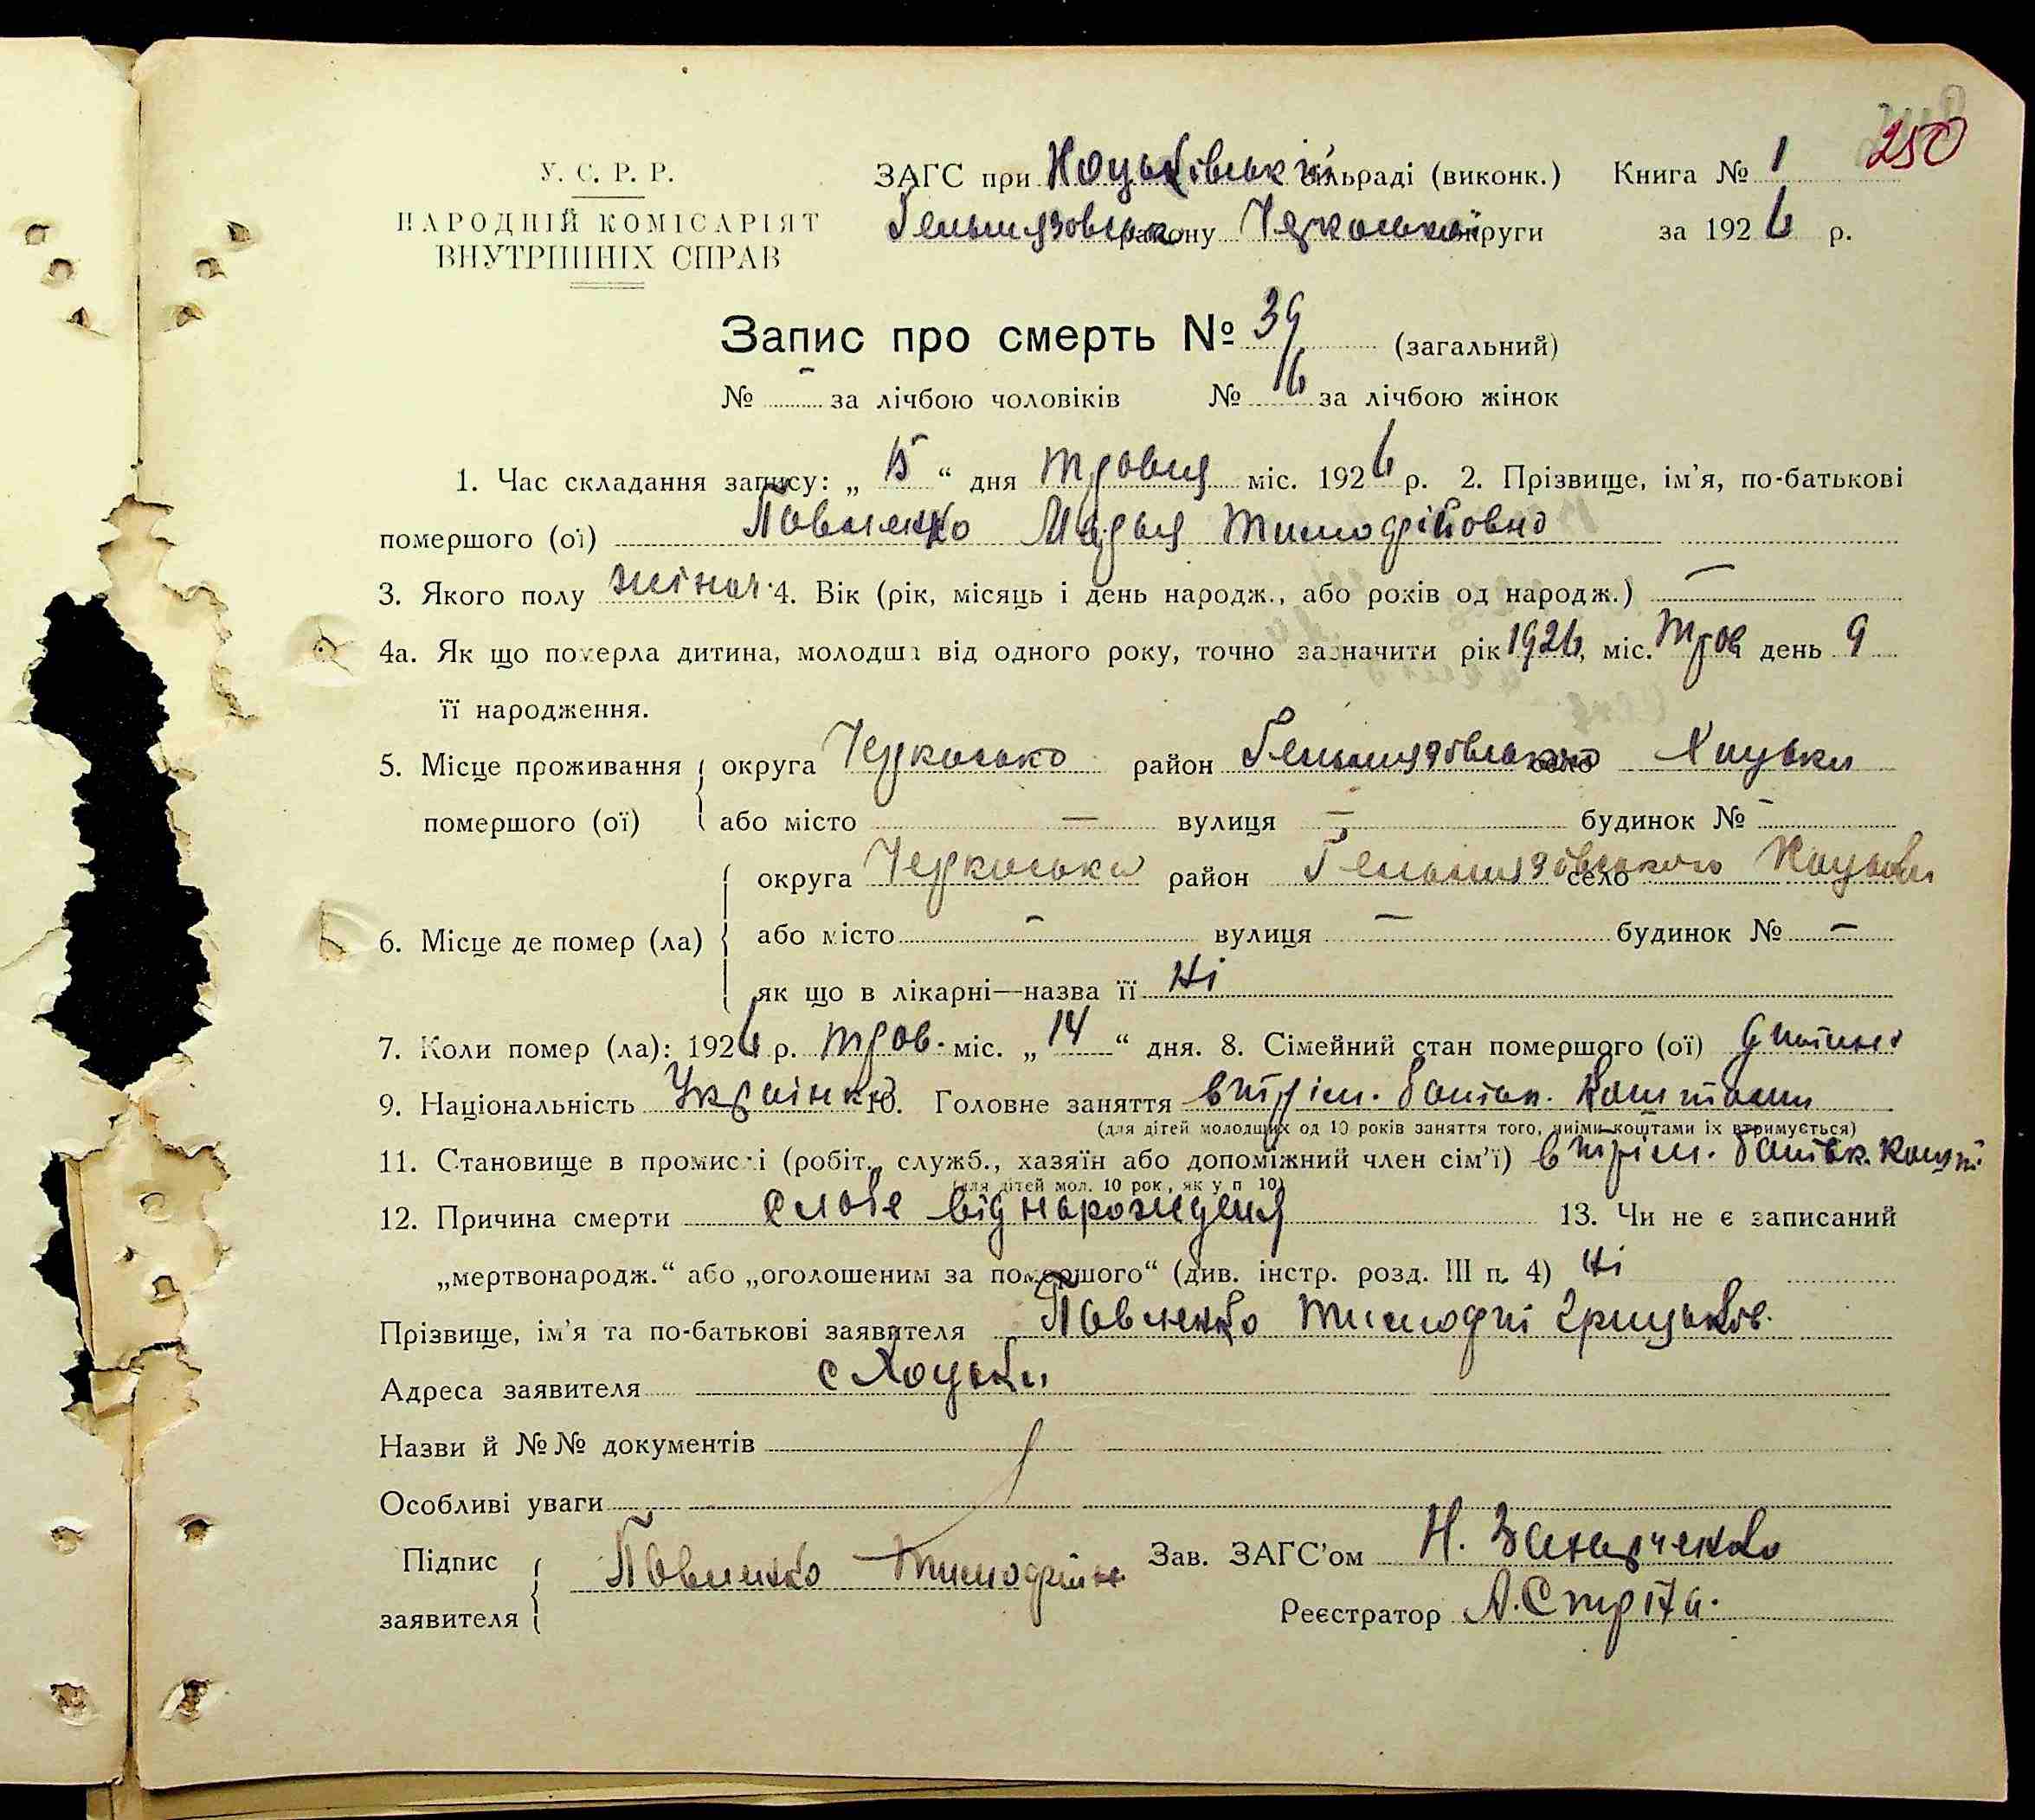 250
У. С. Р. Р.
НАРОДНІЙ КОМІСАРІЯТ
ВНУТРІШНІХ СПРАВ
ЗАГС при Хоцьківській сільраді (виконк.) Книга № 1
Гельмязовськ. району Черкаської округи за 1926 р.
Запис про смерть № 39 (загальний)
№ - за лічбою чоловіків № 16 за лічбою жінок
1. Час складання запису: „ 15 “ дня травня міс. 1926 р. 2. Прізвище, ім'я, по-батькові
помершого (ої) Павленко Марья Тимофійовна
3. Якого полу жіноч. 4. Вік (рік, місяць і день народж., або років од народж.) —
4а. Як що померла дитина, молодша від одного року, точно зазначити рік 1926, міс. трав день 9
її народження.
5. Місце проживання округа Черкасько район Гельмязовсько село Хоцьки
помершого (ої) або місто — вулиця — будинок № —
округа Черкаська район Гельмязовського село Хоцьки
6. Місце де помер (ла) або місто — вулиця — будинок № —
як що в лікарні—назва її Ні
7. Коли помер (ла): 1926 р. трав. міс. „ 14 “ дня. 8. Сімейний стан помершого (ої) дитина
9. Національність Украінка 10. Головне заняття втрім. батьк. коштами
(для дітей молодших од 10 років заняття того, чиїми коштами їх втримується)
11. Становище в промислі (робіт., служб., хазяїн або допоміжний член сім'ї) втрім. батьк. кошт.
(для дітей мол. 10 рок., як у п 10)
12. Причина смерти слабе від народження 13. Чи не є записаний
„мертвонародж.“ або „оголошеним за помершого“ (див. інстр. розд. III п. 4) Ні
Прізвище, ім'я та по-батькові заявителя Павленко Тимофій Грицьков.
Адреса заявителя с Хоцьки
Назви й №№ документів
Особливі уваги
Підпис Павленко Тимофій Зав. ЗАГС'ом Н.
заявителя Реєстратор А. Стріха.